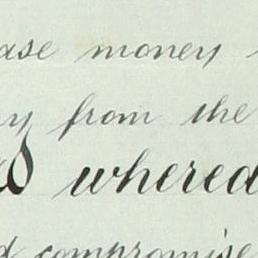 ase money
y from the
d whered
d compromise